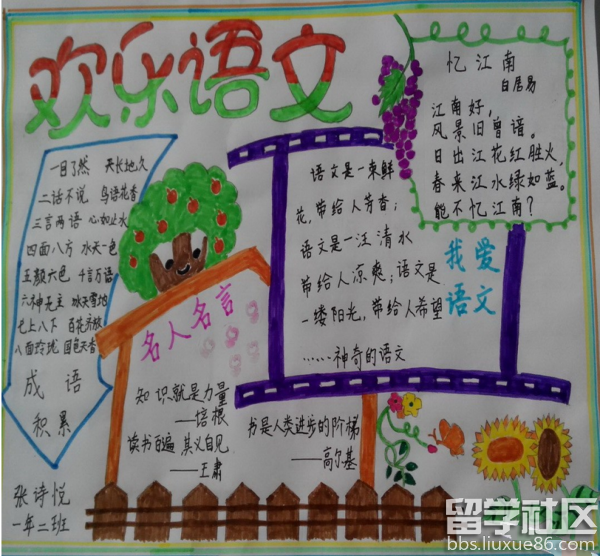 欢乐语文
忆江南
白居易
江南好，
风景旧曾谙。
日出江花红胜火，
春来江水绿如蓝。
能不忆江南？
一目了然 天长地久
二话不说 鸟语花香
三言两语 心如止水
四面八方 水天一色
五颜六色 千言万语
六神无主 冰天雪地
七上八下 百花齐放
八面玲珑 国色天香
成语
积累
语文是一束鲜
花，带给人芳香；
语文是一汪清水
带给人凉爽；语文是
一缕阳光，带给人希望
……神奇的语文
我爱
语文
名人名言
知识就是力量
——培根
读书百遍 其义自见
——王肃
书是人类进步的阶梯
——高尔基
张诗悦
一年二班
留学社区
bbs.liuxue86.com